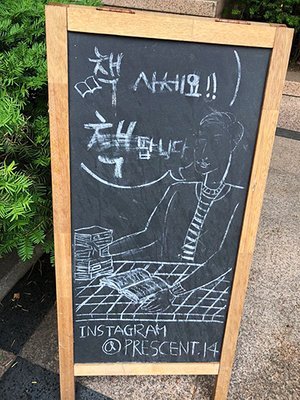 책 사세요!!
책 팝니다
INSTAGRAM
@PRESCENT.14